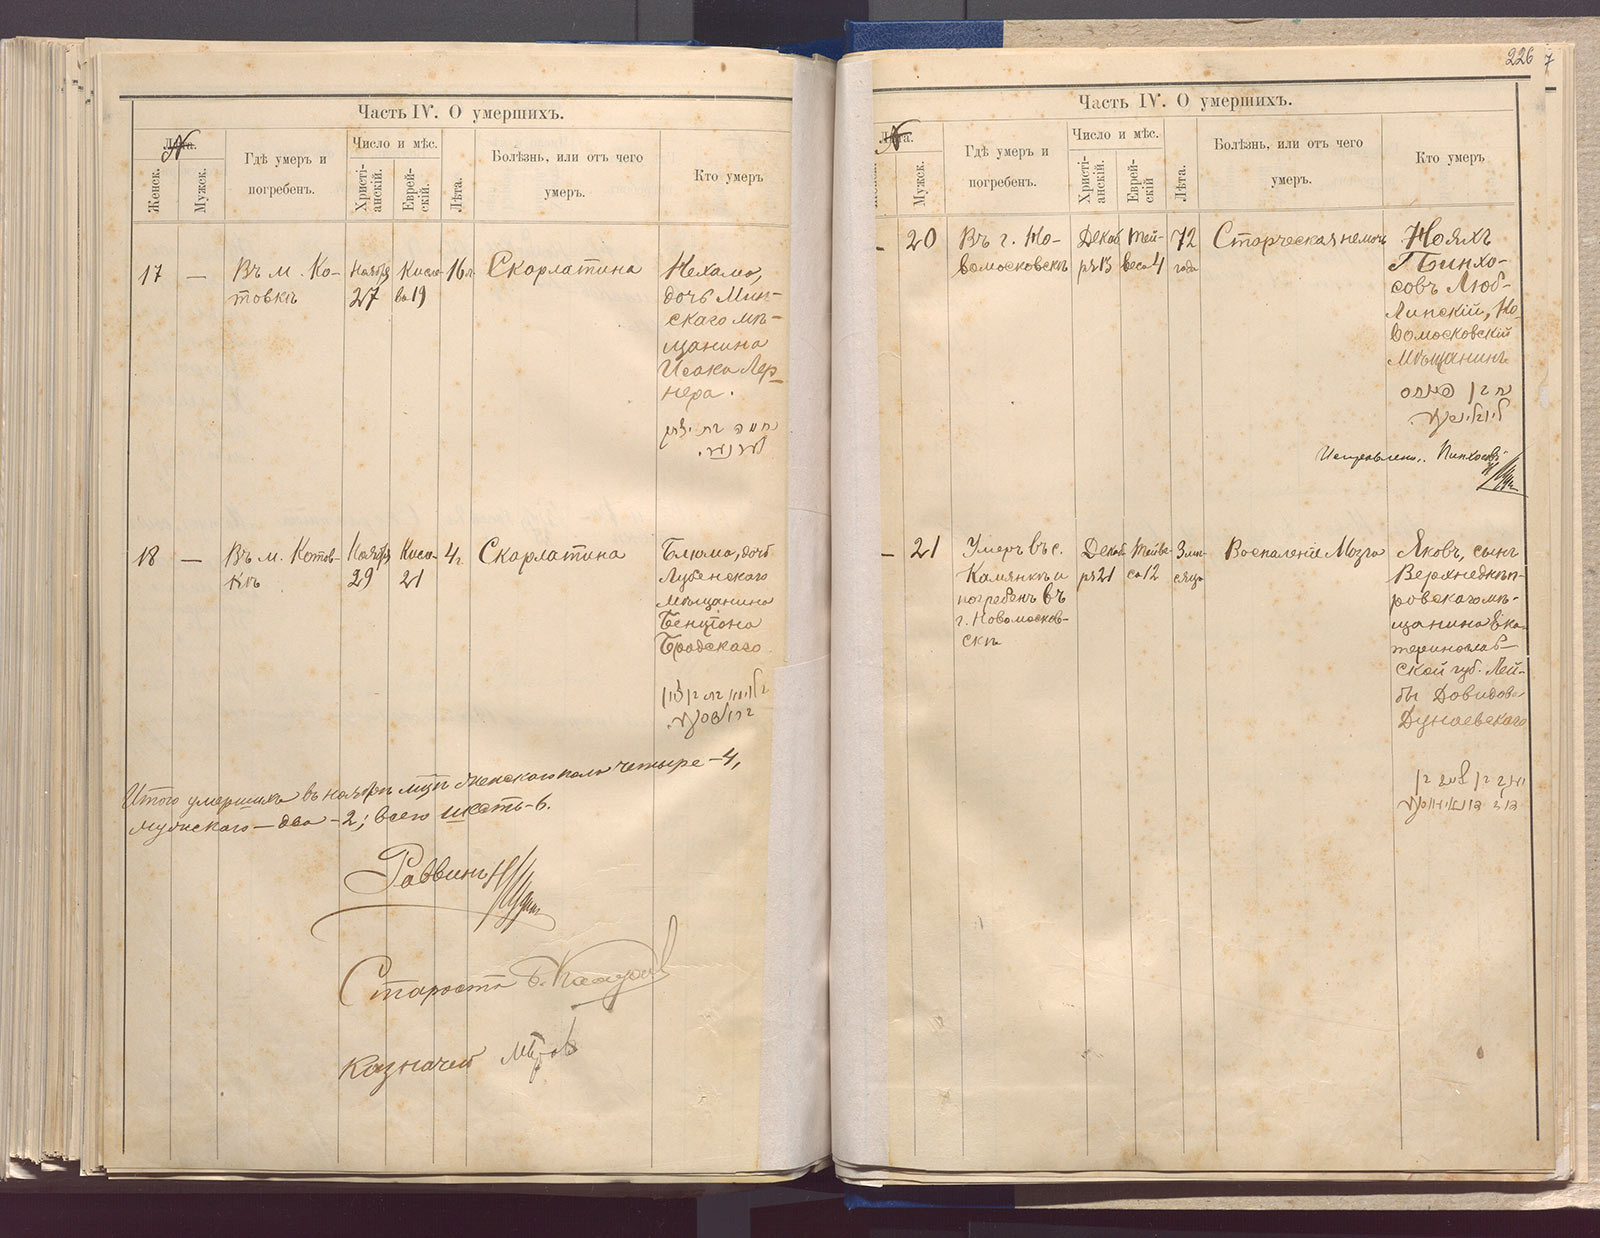 Часть IV. О умершихъ.
Лѣта.
N
Женск.
Мужск.
Гдѣ умеръ и
погребенъ.
Число и мѣс.
Христі-
анскій.
Еврей-
скій.
Лѣта.
Болѣзнь, или отъ чего
умеръ.
Кто умеръ
17
—
Въ м. Ко-
товкѣ
Ноября
27
Кисле-
ва 19
16 л.
Скарлатина
Нехама,
дочь Мин-
скаго мѣ-
щанина
Исака Лер-
нера.
נחמה בת יצחק
לערנער.
18
—
Въ м. Котов-
кѣ
Ноября
29
Кисле-
21
4 г.
Скарлатина
Блюма, дочь
Лубенскаго
мѣщанина
Бенціона
Бродскаго
בלומא בת בן ציון
בראדסקי.
Итого умершихъ въ ноябрѣ м-цѣ женскаго пола четыре – 4,
мужскаго – два – 2; всего шесть – 6.
Раввинъ
Староста
Казначей
226
7
Часть IV. О умершихъ.
Лѣта.
N
Женск.
Мужск.
Гдѣ умеръ и
погребенъ.
Число и мѣс.
Христі-
анскій.
Еврей-
скій
Лѣта.
Болѣзнь, или отъ чего
умеръ.
Кто умеръ
–
20
Въ г. Но-
вомосковскѣ
Декаб
ря 13
Тей-
веса 4
72
года
Старческая немочь
Нояхъ
Пинхо-
совъ Люб-
линскій, Но-
вомосковскій
мѣщанинъ
נח בן פינחס
Исправлено: Пинхосовъ
–
21
Умеръ въ с.
Камянкѣ и
погребенъ въ
г. Новомосков-
скѣ
Декаб
ря 21
Тейве-
са 12
3 мѣ-
сяца
Воспаленіе Мозга
Яковъ, сынъ
Верхнеднѣп-
ровскаго мѣ-
щанина Ека-
теринослав-
ской губ. Лей-
бы Довидова
Дунаевскаго
יעקב בן לייב בן
דוד דונאיעווסקי